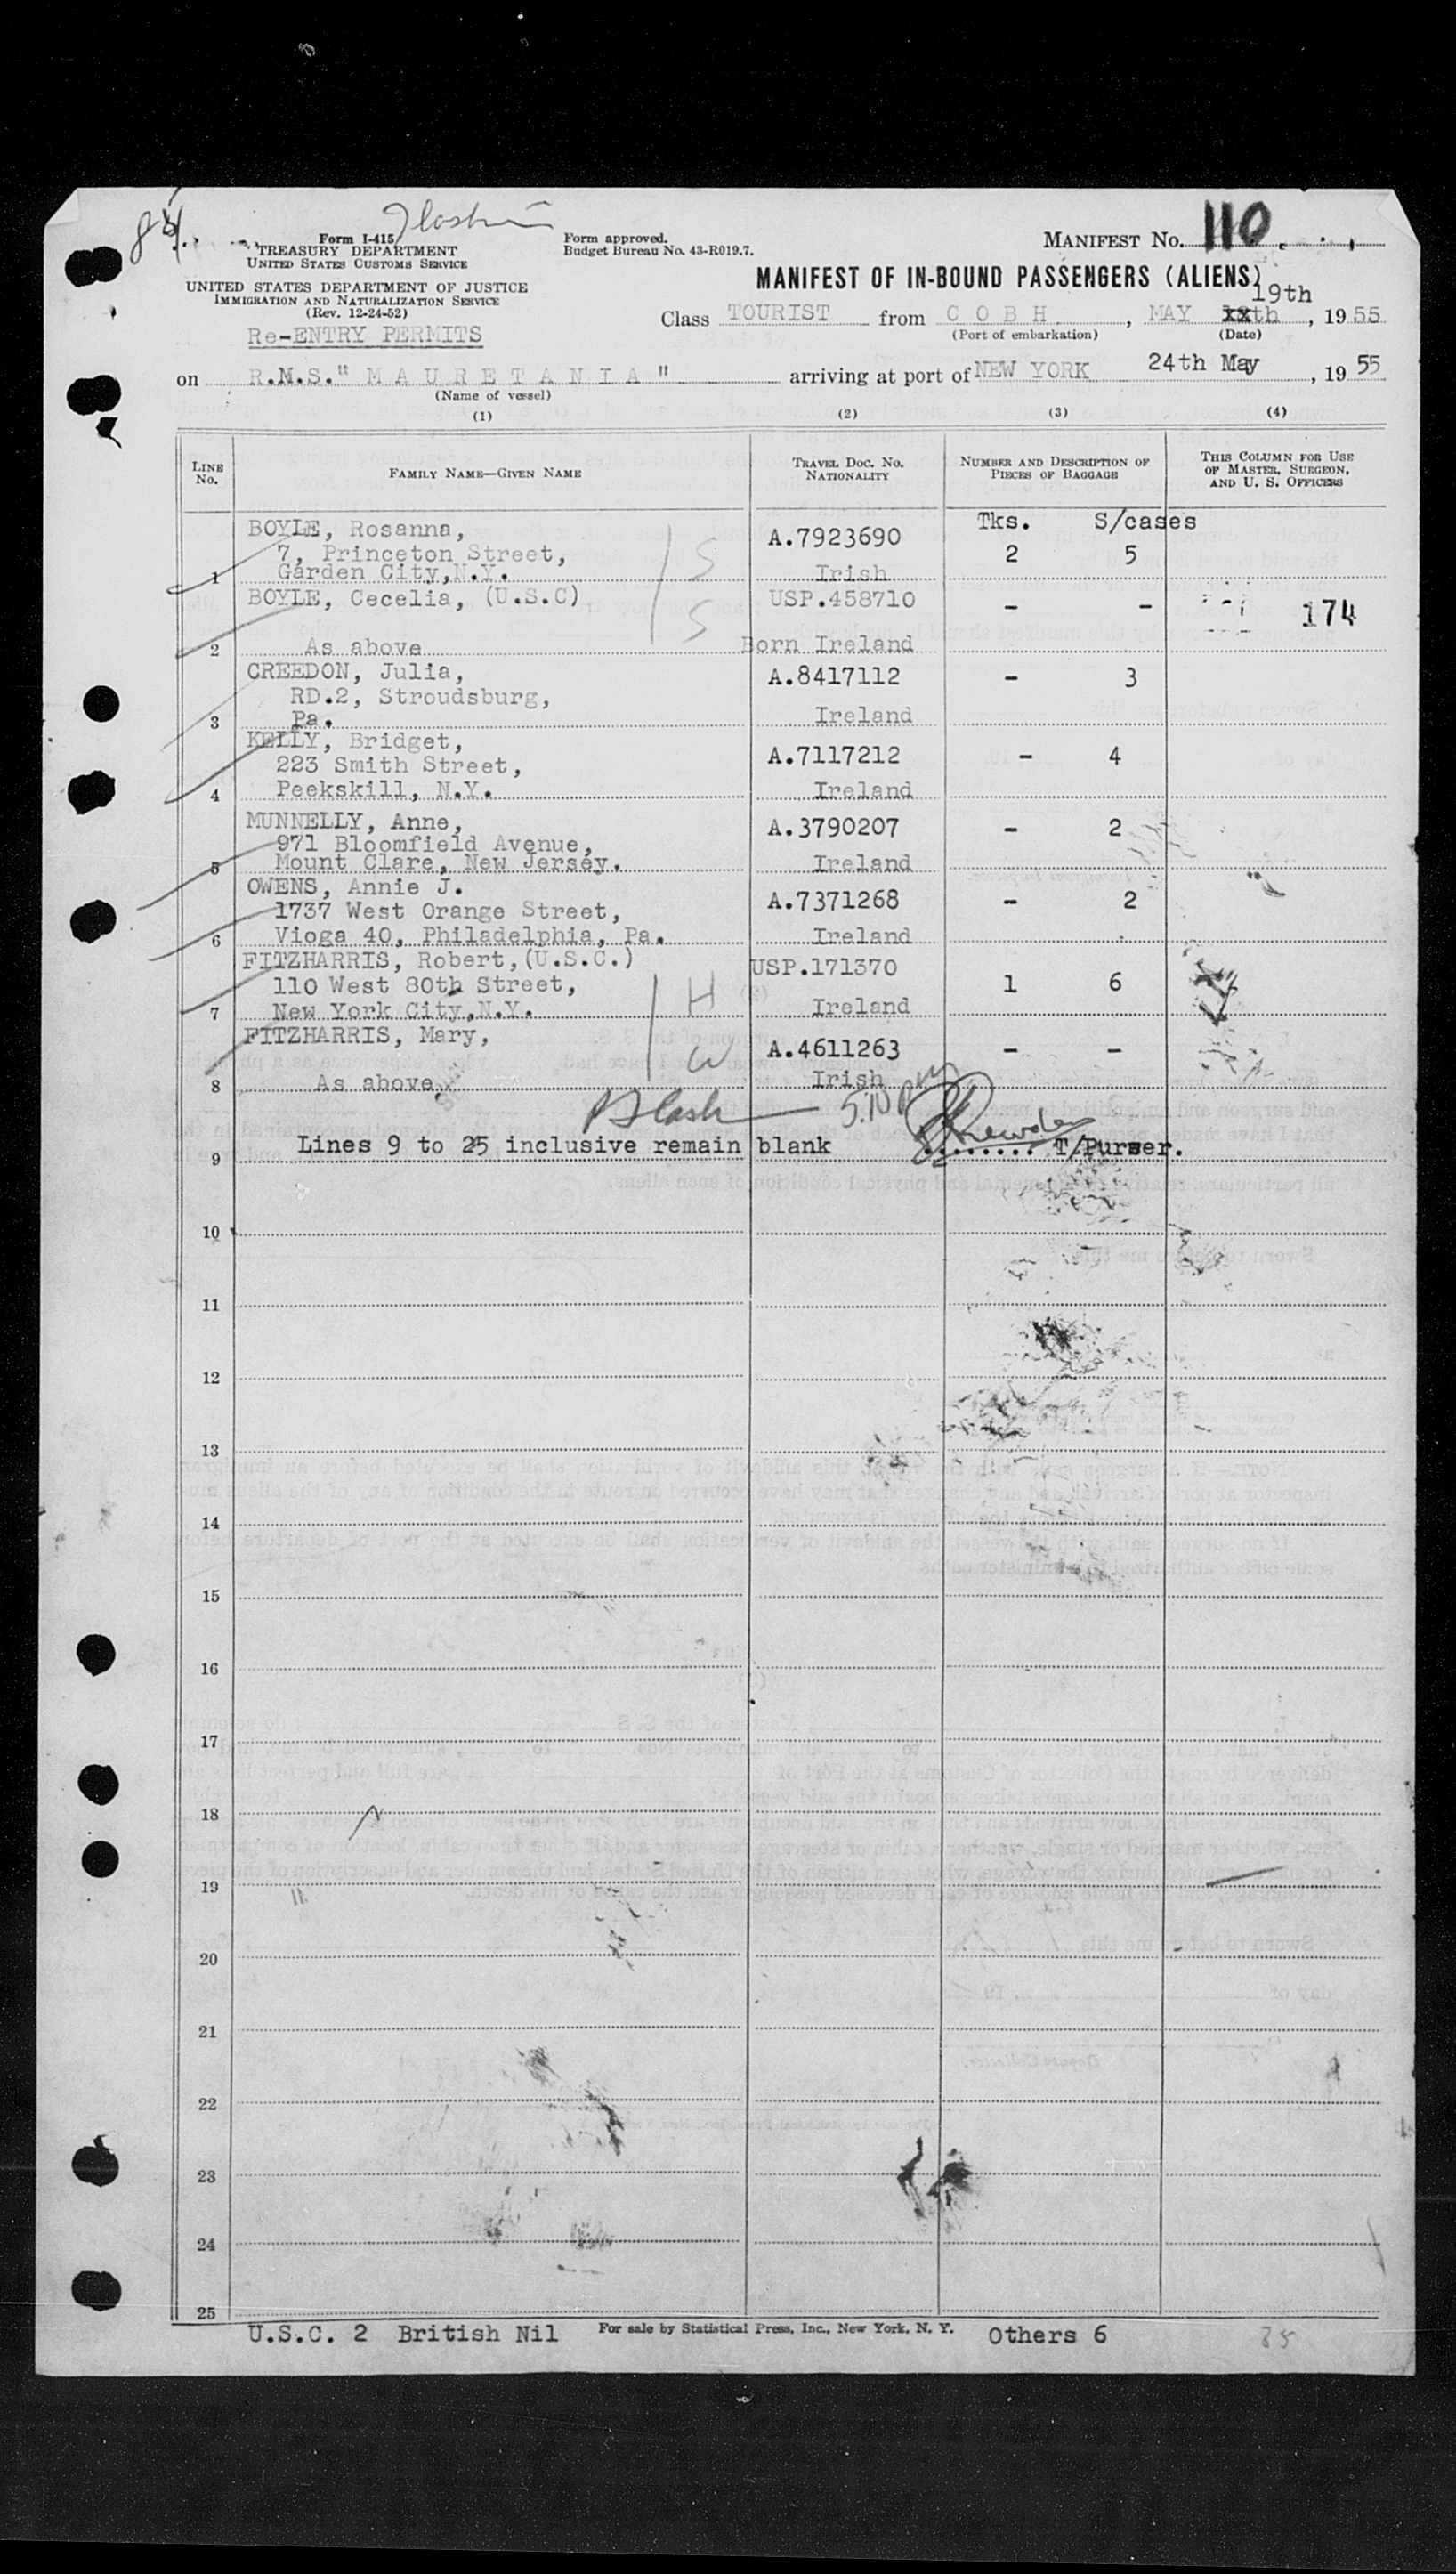 84
Form I-415
TREASURY DEPARTMENT
UNITED STATES CUSTOMS SERVICE
UNITED STATES DEPARTMENT OF JUSTICE
IMMIGRATION AND NATURALIZATION SERVICE
(Rev. 12-24-52)
Re-ENTRY PERMITS
Form approved.
Budget Bureau No. 43-R019.7.
MANIFEST NO. 110
MANIFEST OF IN-BOUND PASSENGERS (ALIENS)
19th
Class TOURIST from C O B H, MAY xxth, 1955
(Port of embarkation) (Date)
on R.M.S." M A U R E T A N I A " arriving at port of NEW YORK 24th May, 1955
(Name of vessel)
(1) (2) (3) (4)
LINE NO. FAMILY NAME—GIVEN NAME TRAVEL DOC. NO. NATIONALITY NUMBER AND DESCRIPTION OF PIECES OF BAGGAGE THIS COLUMN FOR USE OF MASTER, SURGEON, AND U. S. OFFICERS
Tks. S/cases
BOYLE, Rosanna, A.7923690
7, Princeton Street, S 2 5
1 Garden City,N.Y. Irish
BOYLE, Cecelia, (U.S.C) USP.458710 - - 174
S
2 As above Born Ireland
CREEDON, Julia, A.8417112 - 3
RD.2, Stroudsburg,
3 Pa. Ireland
KELLY, Bridget, A.7117212 - 4
223 Smith Street,
4 Peekskill, N.Y. Ireland
MUNNELLY, Anne, A.3790207 - 2
971 Bloomfield Avenue,
5 Mount Clare, New Jersey. Ireland
OWENS, Annie J. A.7371268 - 2
1737 West Orange Street,
6 Vioga 40, Philadelphia, Pa. Ireland
FITZHARRIS, Robert,(U.S.C.) USP.171370
110 West 80th Street, H 1 6
7 New York City,N.Y. Ireland
FITZHARRIS, Mary, A.4611263 - -
W
8 As above Irish
5.10 pm
9 Lines 9 to 25 inclusive remain blank ........ T/Purser.
10
11
12
13
14
15
16
17
18
19
20
21
22
23
24
25
U.S.C. 2 British Nil For sale by Statistical Press, Inc., New York, N. Y. Others 6